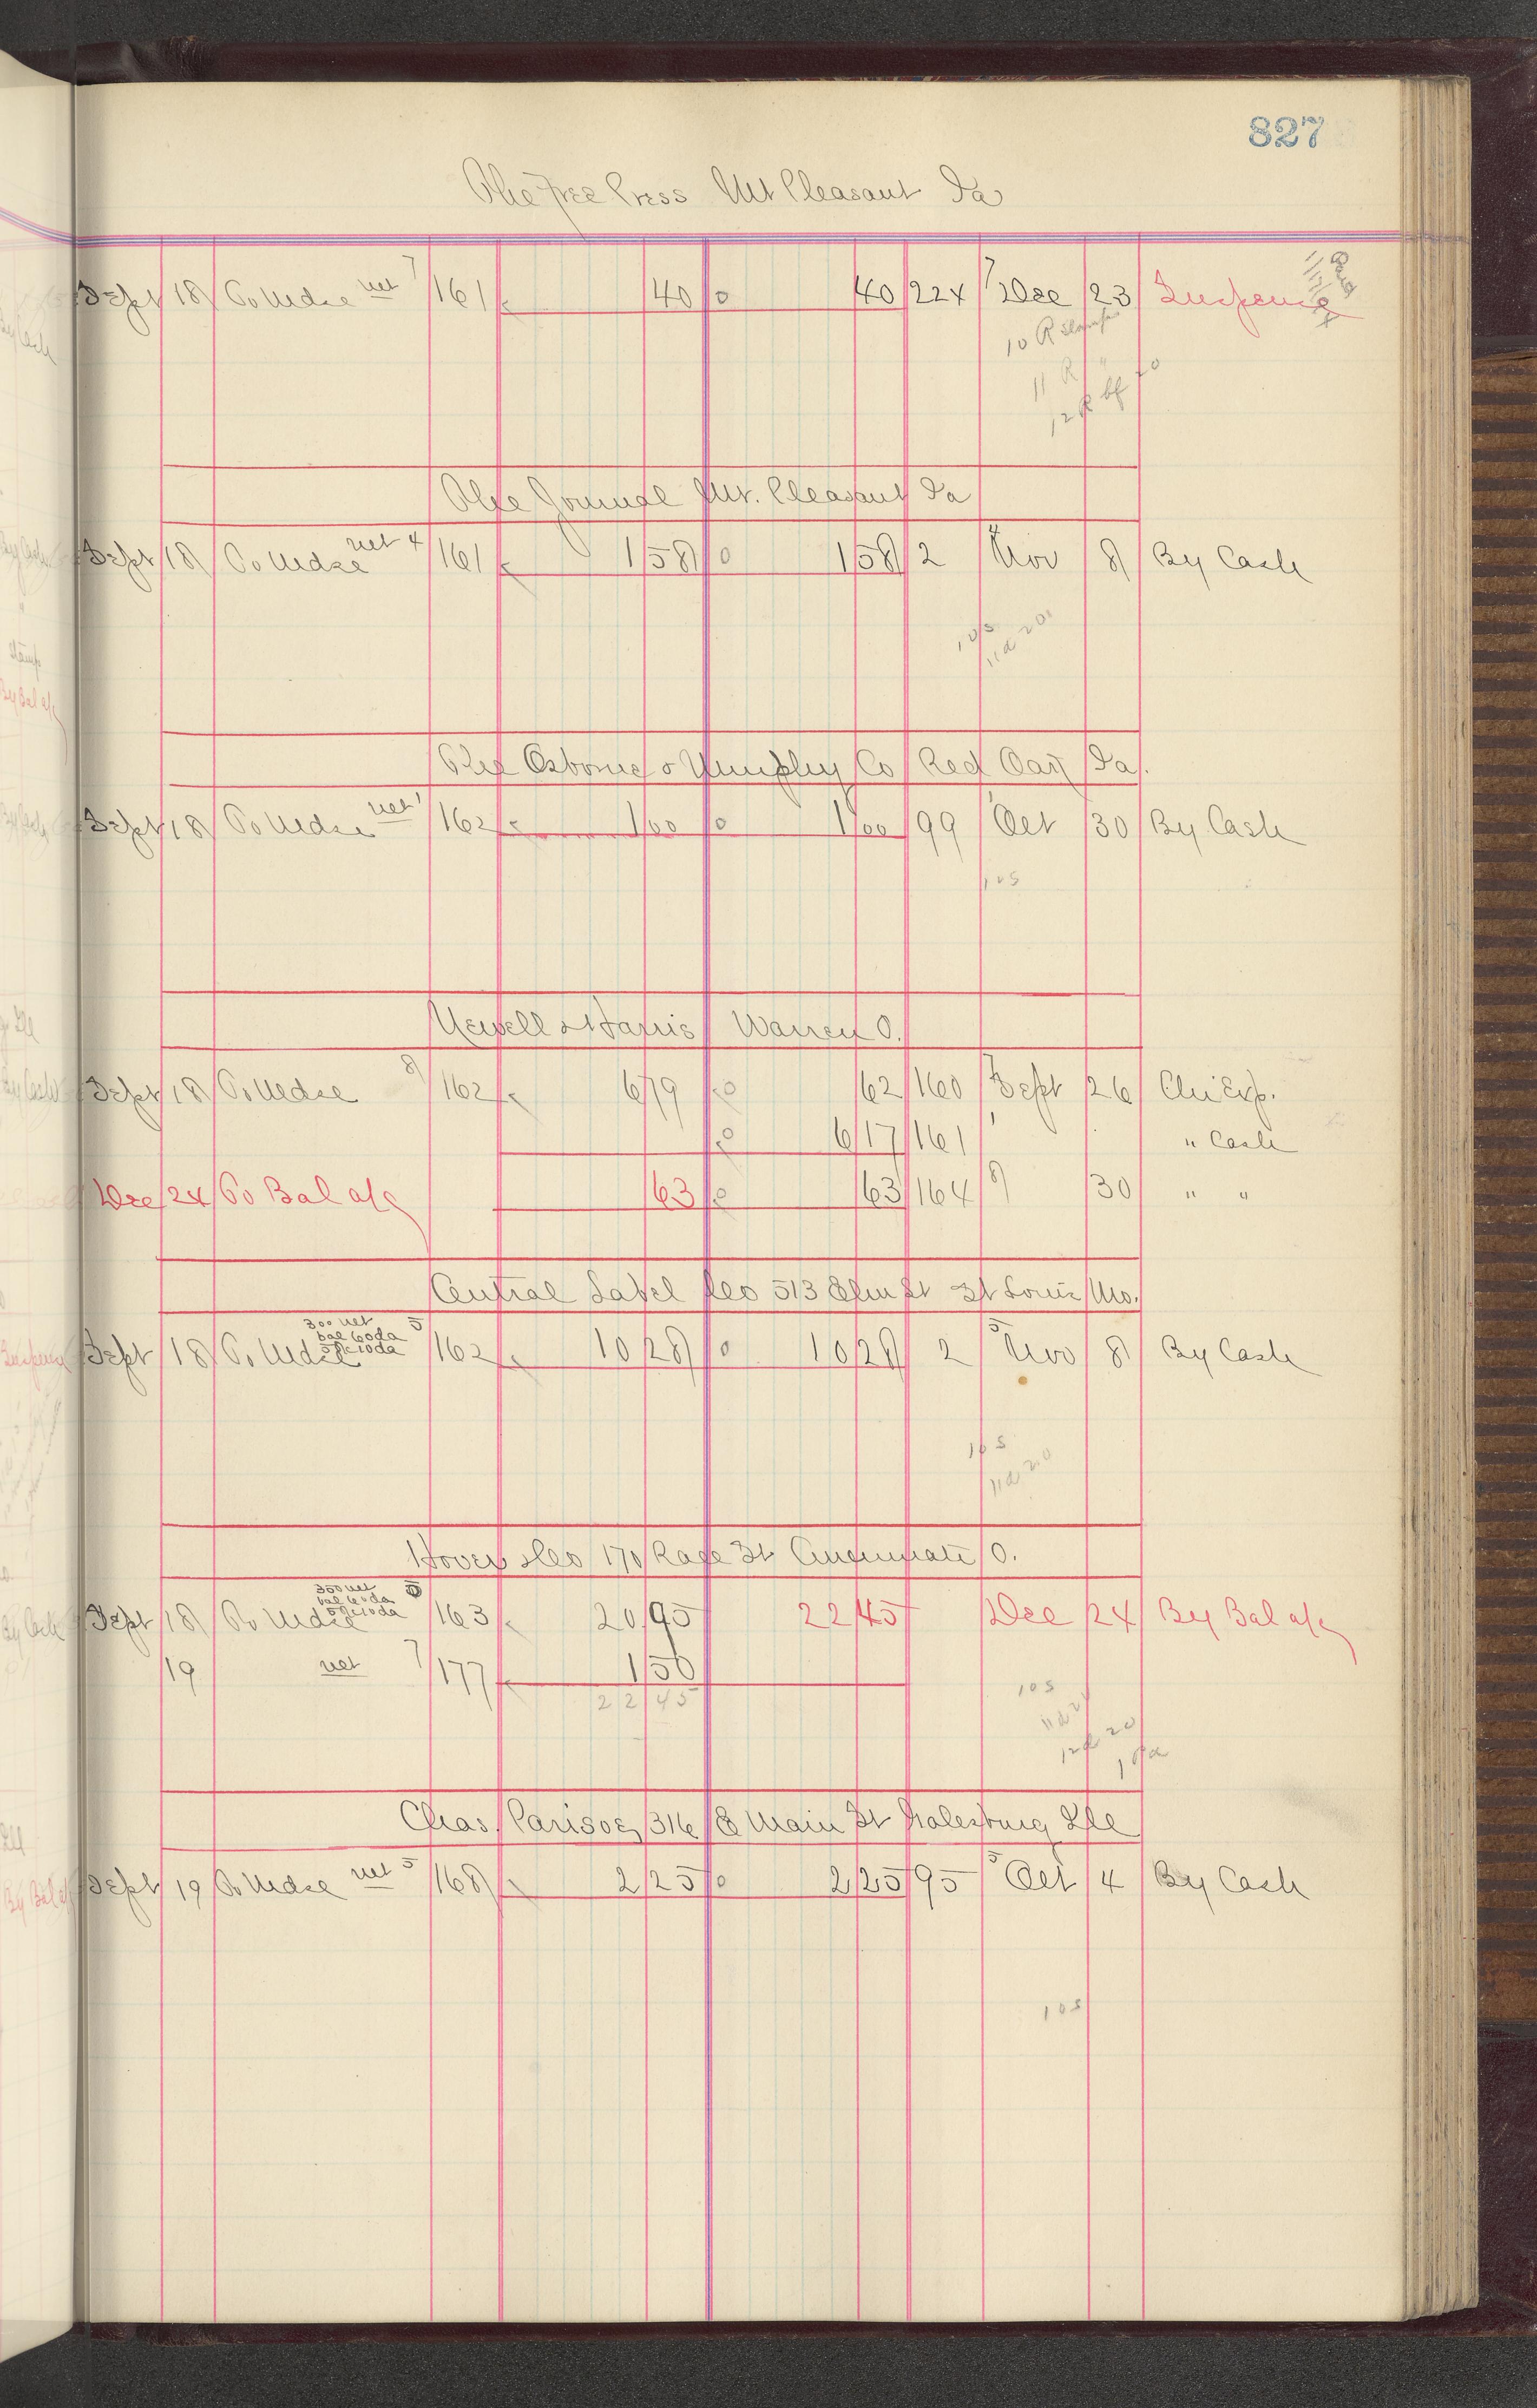 827
The Free Press Mt Pleasant Ia
Sept 18 To Mdse net 7 161 40 40 224 7 Dec 23 Suspense
10 R Stamps
11 R "
12 R bf
The Journal Mt. Pleasant Ia
Sept 18 To Mdse net 4 161 1 58 1 58 2 4 Nov 8 By Cash
10 S
11 d 20
The Osborne & Murphy Co Red Oak Ia.
Sept 18 To Mdse net 1 162 1 00 1 00 99 1 Oct 30 By Cash
10 S
Newell & Harris Warren O.
Sept 18 To Mdse 8 162 6 79 62 160 7 Sept 26 Chi Exp.
6 17 161 1 " Cash
Dec 24 To Bal a/c 63 63 164 8 30 " "
Central Label Co 513 Elm St St Louis Mo.
300 net 5
bal 60da
5% 10da
Sept 18 To Mdse 162 10 28 10 28 2 5 Nov 8 By Cash
10 S
11 d 20
Hoven & Co 170 Race St Cincinnati O.
300 net
bal 60da
5% 10da
Sept 18 To Mdse 163 20 95 22 45 Dec 24 By Bal a/c
19 net 7 177 1 50
22 45
10 S
11 d 2
12 d 20
Chas. Parisoe 316 E Main St Galesburg Ill
Sept 19 To Mdse net 5 168 2 25 2 25 95 5 Oct 4 By Cash
10 S